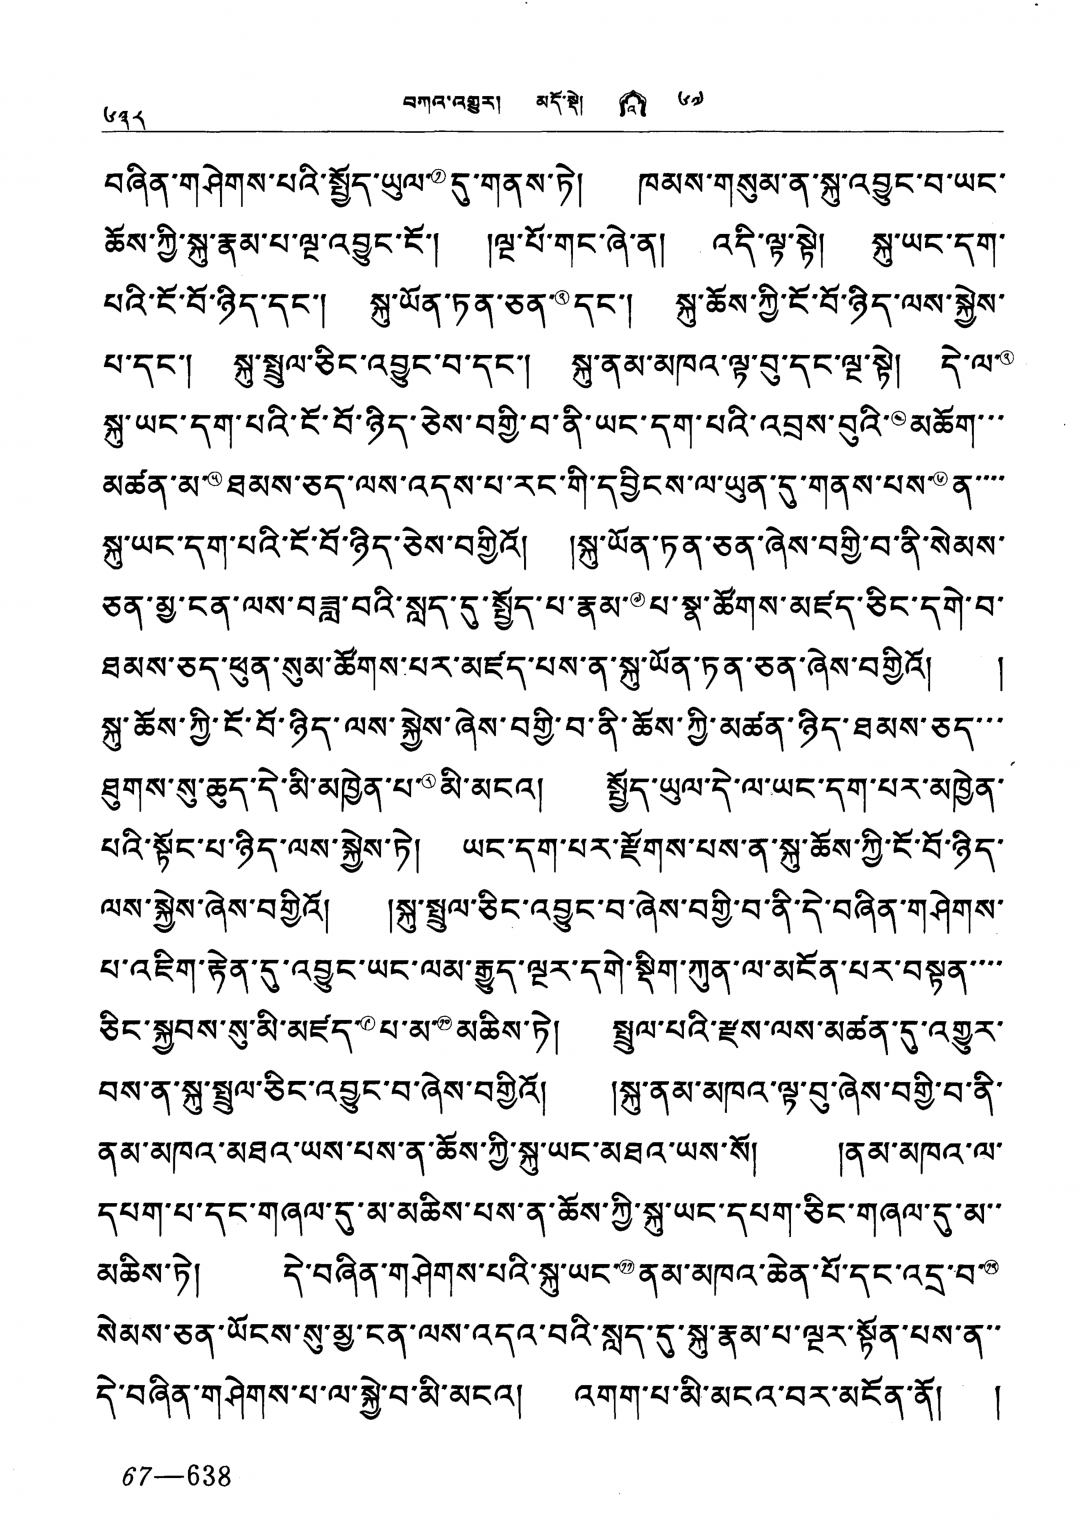 ༦༣༨ བཀའ་འགྱུར། མདོ་སྡེ། འ ༦༧
བཞིན་གཤེགས་པའི་སྤྱོད་ཡུལ་①དུ་གནས་ཏེ། ཁམས་གསུམ་ན་སྐུ་འབྱུང་བ་ཡང་
ཆོས་ཀྱི་སྐུ་རྣམ་པ་ལྔ་འབྱུང་ངོ་། །ལྔ་པོ་གང་ཞེ་ན། འདི་ལྟ་སྟེ། སྐུ་ཡང་དག་
པའི་ངོ་བོ་ཉིད་དང་། སྐུ་ཡོན་ཏན་ཅན་②དང་། སྐུ་ཆོས་ཀྱི་ངོ་བོ་ཉིད་ལས་སྐྱེས་
པ་དང་། སྐུ་སྤྲུལ་ཅིང་འབྱུང་བ་དང་། སྐུ་ནམ་མཁའ་ལྟ་བུ་དང་ལྔ་སྟེ། དེ་ལ་③
སྐུ་ཡང་དག་པའི་ངོ་བོ་ཉིད་ཅེས་བགྱི་བ་ནི་ཡང་དག་པའི་འབྲས་བུའི་④མཆོག་་་
མཚན་མ་⑤ཐམས་ཅད་ལས་འདས་པ་རང་གི་དབྱིངས་ལ་ཡུན་དུ་གནས་པས་⑥ན་་་་
སྐུ་ཡང་དག་པའི་ངོ་བོ་ཉིད་ཅེས་བགྱིའོ། །སྐུ་ཡོན་ཏན་ཅན་ཞེས་བགྱི་བ་ནི་སེམས་
ཅན་མྱ་ངན་ལས་བཟླ་བའི་སླད་དུ་སྤྱོད་པ་རྣམ་⑦པ་སྣ་ཚོགས་མཛད་ཅིང་དགེ་བ་
ཐམས་ཅད་ཕུན་སུམ་ཚོགས་པར་མཛད་པས་ན་སྐུ་ཡོན་ཏན་ཅན་ཞེས་བགྱིའོ། །
སྐུ་ཆོས་ཀྱི་ངོ་བོ་ཉིད་ལས་སྐྱེས་ཞེས་བགྱི་བ་ནི་ཆོས་ཀྱི་མཚན་ཉིད་ཐམས་ཅད་་་
ཐུགས་སུ་ཆུད་དེ་མི་མཁྱེན་པ་⑧མི་མངའ། སྤྱོད་ཡུལ་དེ་ལ་ཡང་དག་པར་མཁྱེན་
པའི་སྟོང་པ་ཉིད་ལས་སྐྱེས་ཏེ། ཡང་དག་པར་རྫོགས་པས་ན་སྐུ་ཆོས་ཀྱི་ངོ་བོ་ཉིད་
ལས་སྐྱེས་ཞེས་བགྱིའོ། །སྐུ་སྤྲུལ་ཅིང་འབྱུང་བ་ཞེས་བགྱི་བ་ནི་དེ་བཞིན་གཤེགས་
པ་འཇིག་རྟེན་དུ་འབྱུང་ཡང་ལམ་རྒྱུད་ལྔར་དགེ་སྡིག་ཀུན་ལ་མངོན་པར་བསྟན་་་་
ཅིང་སྐྱབས་སུ་མི་མཛད་⑨པ་མ་⑩མཆིས་ཏེ། སྤྲུལ་པའི་རྫས་ལས་མཚན་དུ་འགྱུར་
བས་ན་སྐུ་སྤྲུལ་ཅིང་འབྱུང་བ་ཞེས་བགྱིའོ། །སྐུ་ནམ་མཁའ་ལྟ་བུ་ཞེས་བགྱི་བ་ནི་
ནམ་མཁའ་མཐའ་ཡས་པས་ན་ཆོས་ཀྱི་སྐུ་ཡང་མཐའ་ཡས་སོ། །ནམ་མཁའ་ལ་
དཔག་པ་དང་གཞལ་དུ་མ་མཆིས་པས་ན་ཆོས་ཀྱི་སྐུ་ཡང་དཔག་ཅིང་གཞལ་དུ་མ་་
མཆིས་ཏེ། དེ་བཞིན་གཤེགས་པའི་སྐུ་ཡང་⑪ནམ་མཁའ་ཆེན་པོ་དང་འདྲ་བ་⑫
སེམས་ཅན་ཡོངས་སུ་མྱ་ངན་ལས་འདའ་བའི་སླད་དུ་སྐུ་རྣམ་པ་ལྔར་སྟོན་པས་ན་་
དེ་བཞིན་གཤེགས་པ་ལ་སྐྱེ་བ་མི་མངའ། འགག་པ་མི་མངའ་བར་མངོན་ནོ། །
67—638